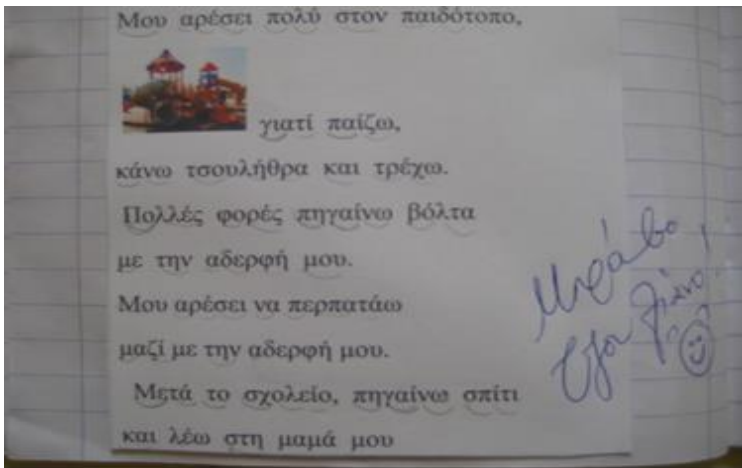 Μου αρέσει πολύ στον παιδότοπο,
γιατί παίζω,
κάνω τσουλήθρα και τρέχω.
Πολλές φορές πηγαίνω βόλτα
με την αδερφή μου.
Μου αρέσει να περπατάω
μαζί με την αδερφή μου.
Μετά το σχολείο, πηγαίνω σπίτι
και λέω στη μαμά μου
Μπράβο